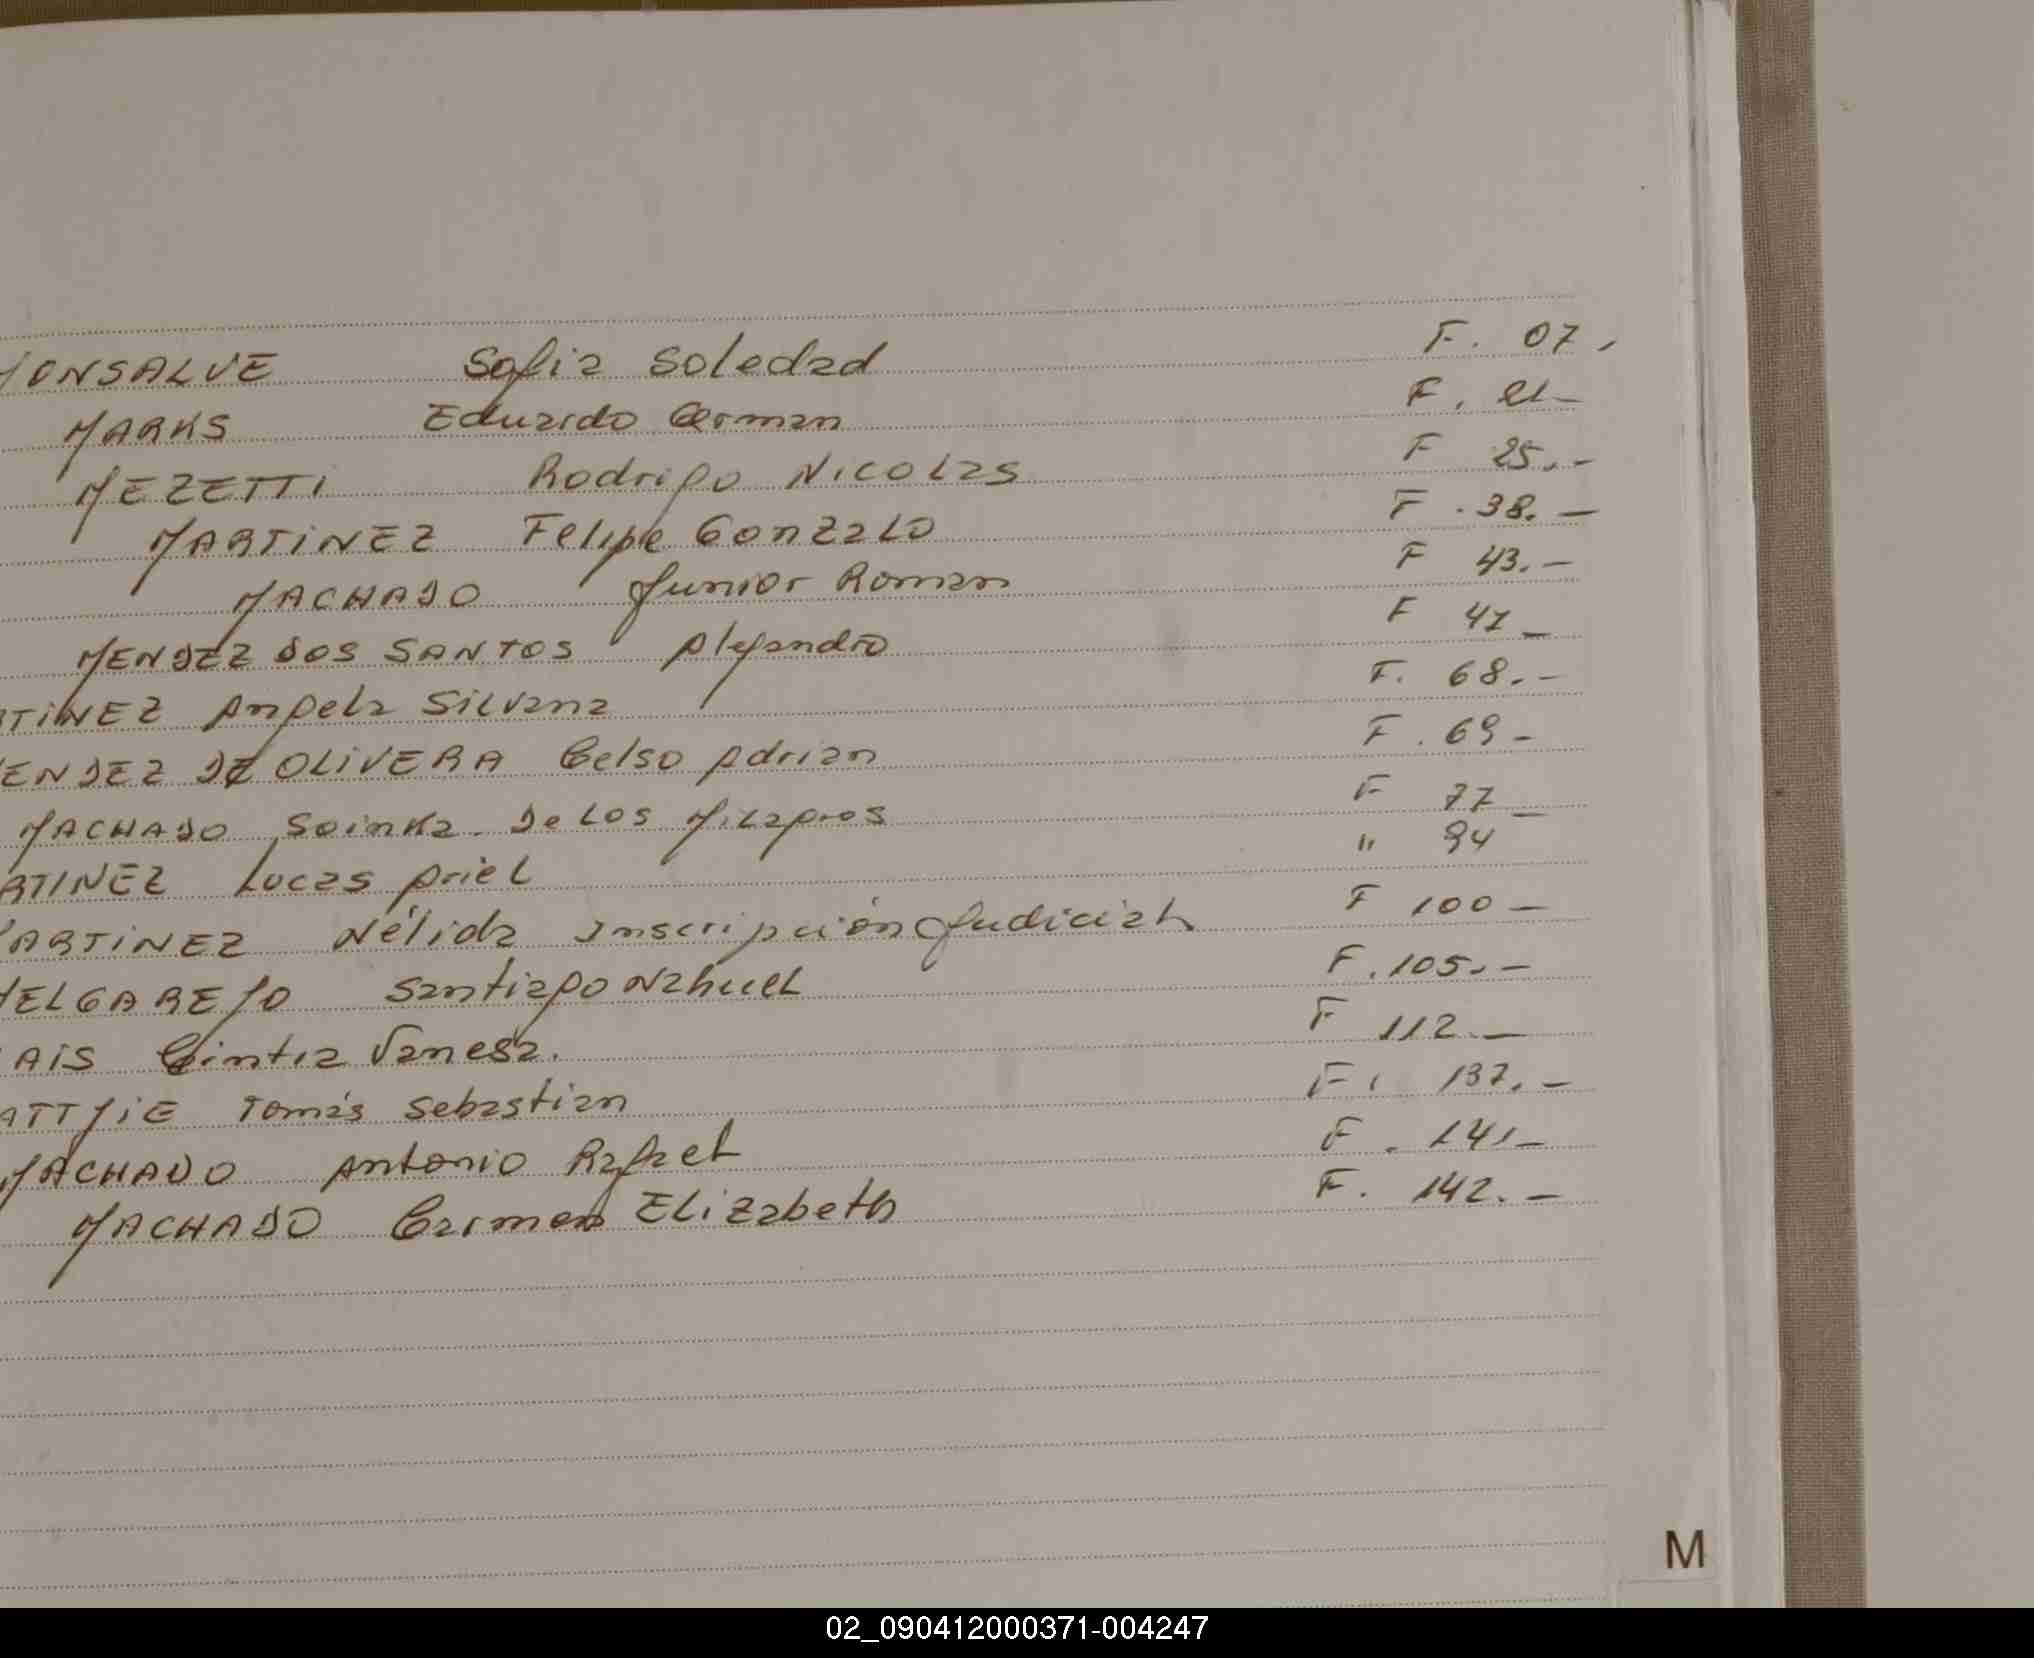 MONSALVE Sofia Soledad F. 07.
MARKS Eduardo German F. 21-
MEZETTI Rodrigo Nicolas F 25.-
MARTINEZ Felipe Gonzalo F. 38.-
MACHADO Junior Roman F 43.-
MENDEZ DOS SANTOS Alejandro F 47-
TINEZ Angela Silvana F. 68.-
ENDEZ DE OLIVERA Celso Adrian F. 69-
MACHADO Soinka De Los Milagros F 77-
RTINEZ Lucas Ariel " 94
MARTINEZ Nélida Inscripción Judicial F 100-
MELGAREJO Santiago Nahuel F. 105.-
AIS Cintia Vanesa. F 112.-
ATTJIE Tomás Sebastian F. 137.-
MACHADO Antonio Rafael F. 141-
MACHADO Carmen Elizabeth F. 142.-
M
02_090412000371-004247